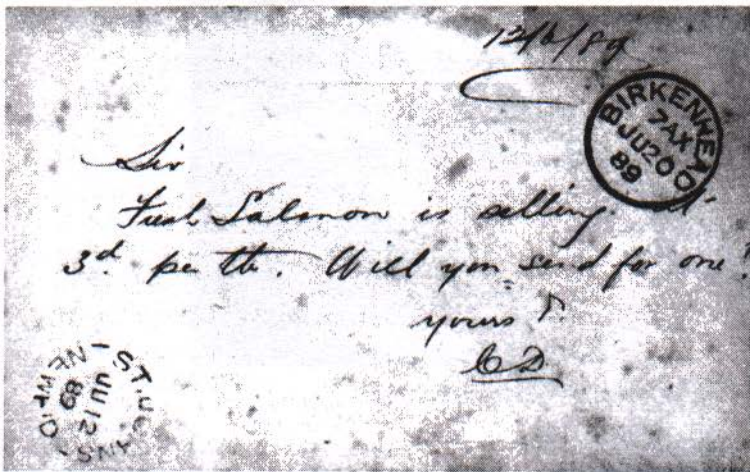 12/6/89
BIRKENHEAD
7AX
JU20
89
Sir
Fresh Salmon is selling at
3d. per lb. Will you send for one?
yours
CD
ST. JOHNS - NEWF'D -
JU 12
89